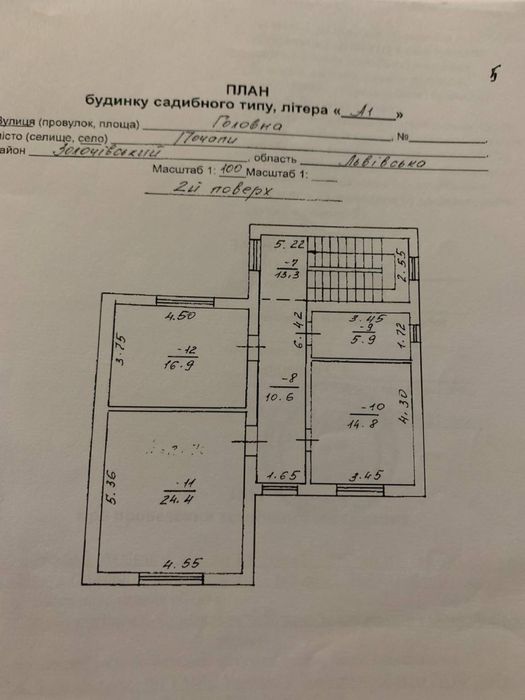 5
ПЛАН
будинку садибного типу, літера « А1 »
Вулиця (провулок, площа) Головна, №
місто (селище, село) Почапи
район Золочівський, область Львівська
Масштаб 1: 100 Масштаб 1:
2й поверх
5.22
-7
13.3
2.55
4.50
3.75
-12
16.9
6.42
3.45
-9
5.9
1.72
-8
10.6
-10
14.8
4.30
5.36
-11
24.4
1.65
3.45
4.55